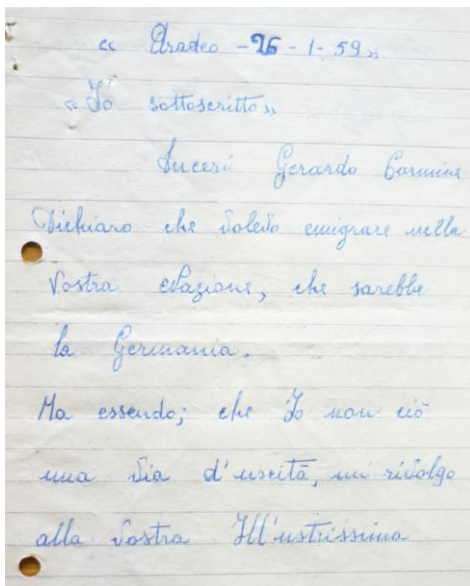 « Aradeo - 26 - 1 - 59 »
« Io sottoscritto »
Luceri Gerardo Carmine
Dichiaro che Volevo emigrare nella
Vostra Nazione, che sarebbe
la Germania.
Ma essendo; che Io non ciò
una Via d'uscità, mi rivolgo
alla Vostra Ill'ustrissima